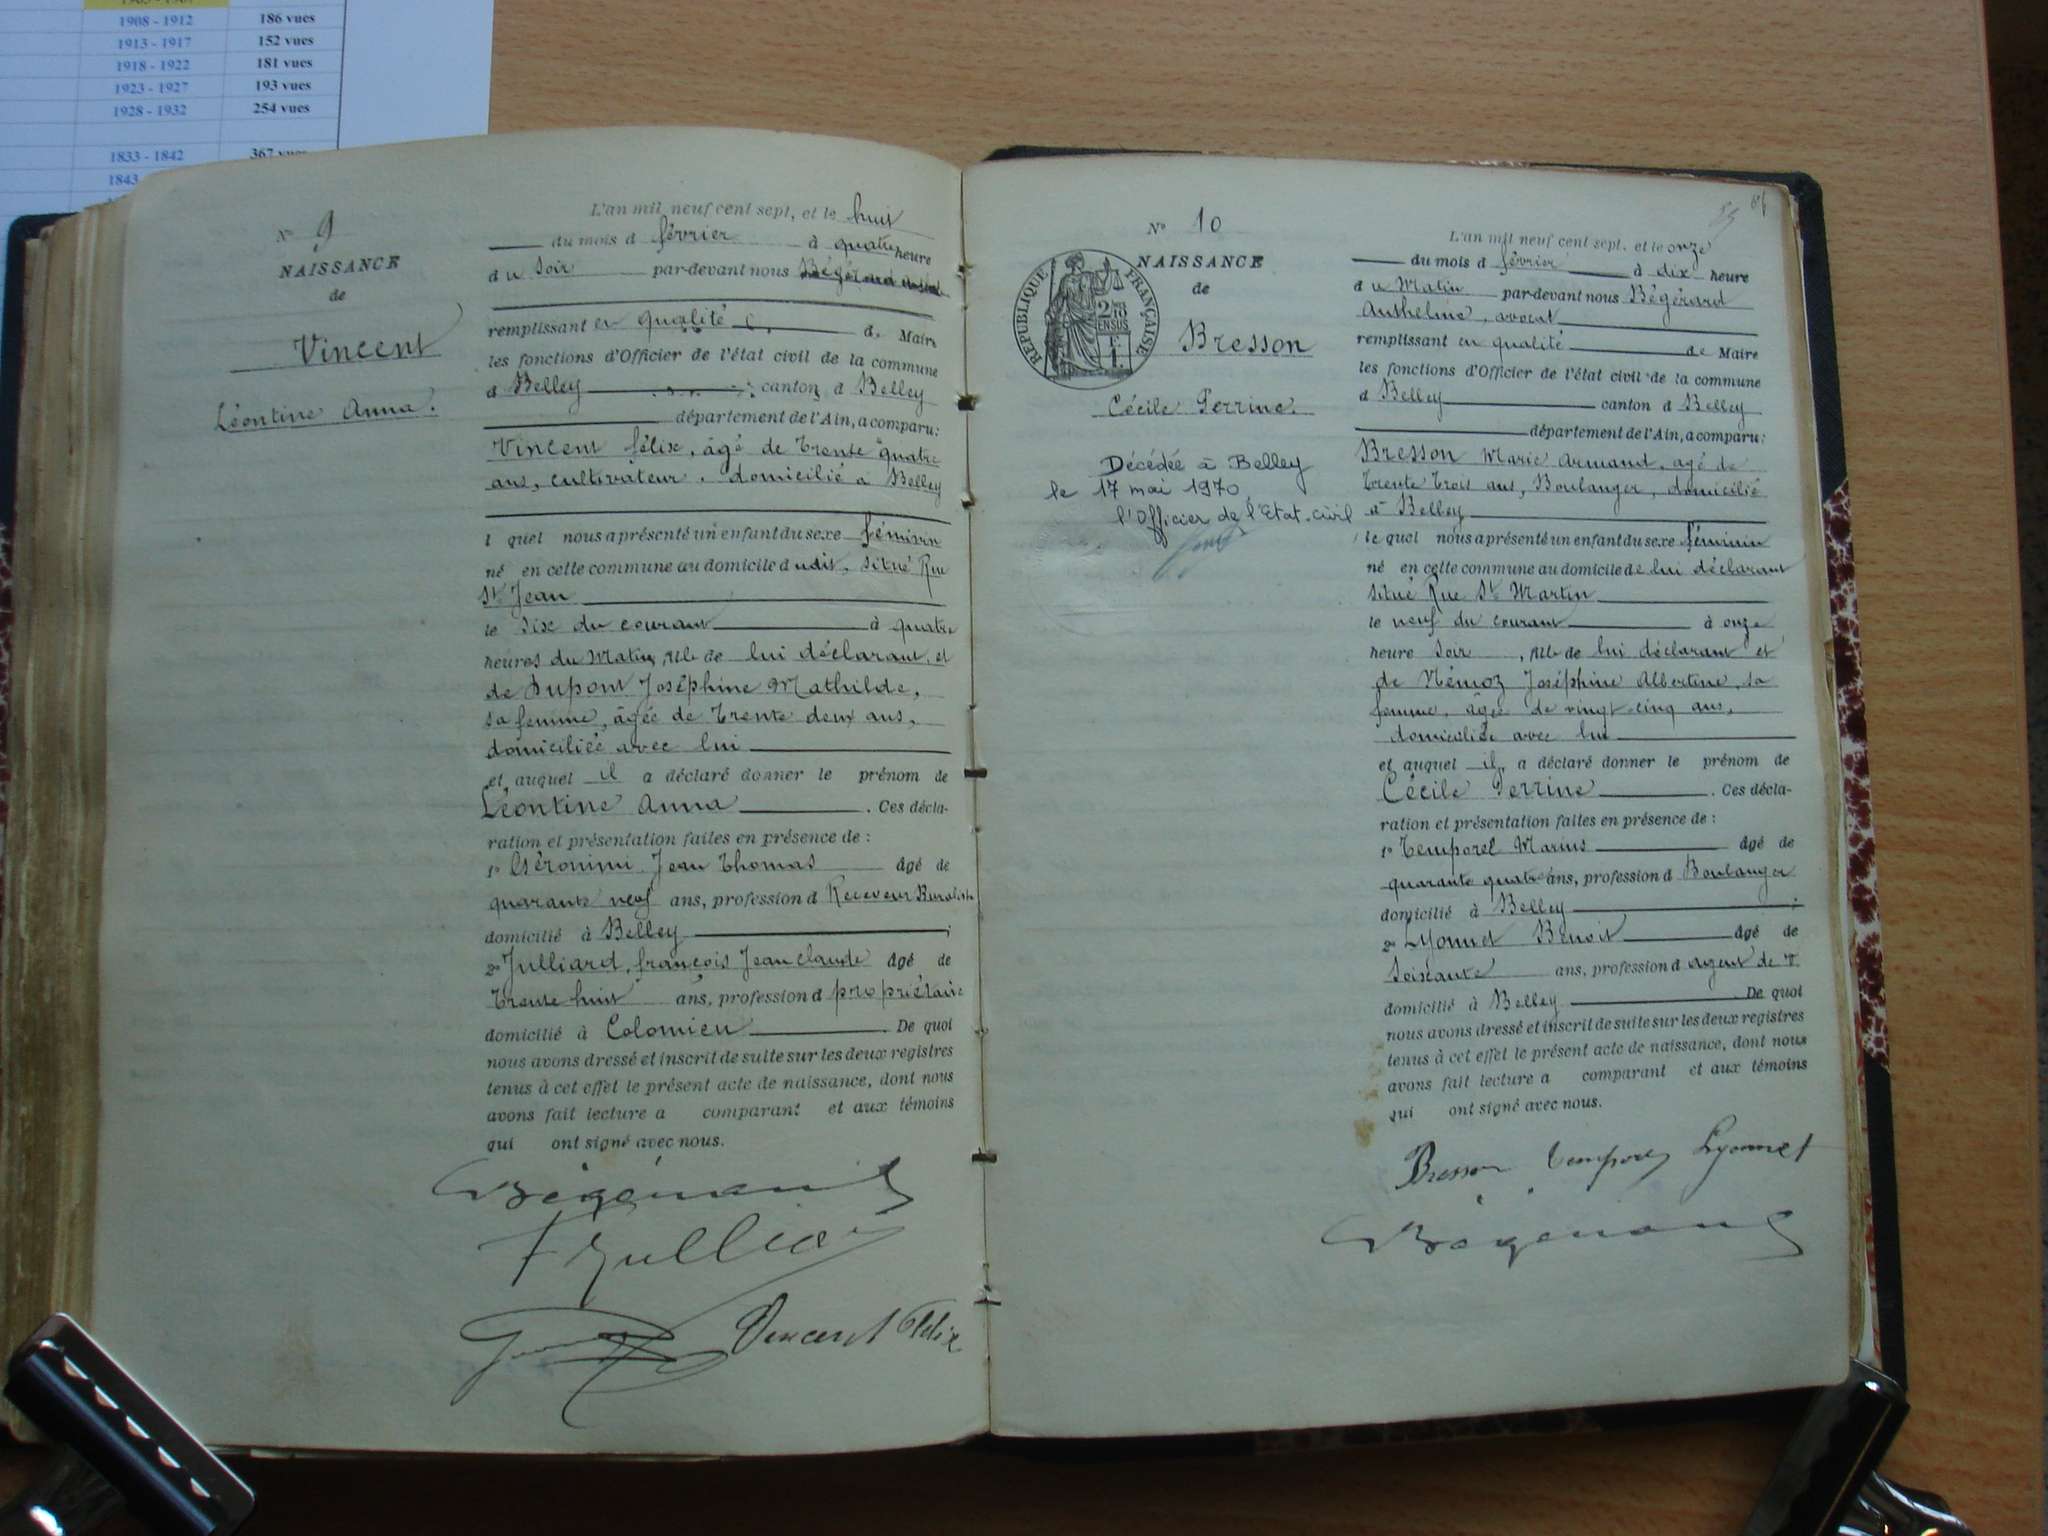 1908 - 1912 186 vues
1913 - 1917 152 vues
1918 - 1922 181 vues
1923 - 1927 193 vues
1928 - 1932 254 vues
1833 - 1842 367 vues
1843
N° 9
NAISSANCE
de
Vincent
Léontine Anna.
L'an mil neuf cent sept, et le huit
du mois d février à quatre heure
du soir par-devant nous Bégérard
remplissant en qualité d. Maire
les fonctions d'Officier de l'état civil de la commune
d Belley canton d Belley
département de l'Ain, a comparu:
Vincent félix, âgé de trente quatre
ans, cultivateur, domicilié à Belley
l quel nous a présenté un enfant du sexe féminin
né en cette commune au domicile dudit, situé Rue
St Jean
le six du courant à quatre
heures du matin, de lui déclarant, et
de Dupont Joséphine Mathilde,
sa femme, âgée de trente deux ans,
domiciliée avec lui
et auquel il a déclaré donner le prénom de
Léontine Anna. Ces décla-
ration et présentation faites en présence de:
1° Géronimi Jean Thomas âgé de
quarante neuf ans, profession d Receveur Buraliste
domicilié à Belley;
2° Julliard, françois Jean Claude âgé de
trente huit ans, profession d propriétaire
domicilié à Colomieu. De quoi
nous avons dressé et inscrit de suite sur les deux registres
tenus à cet effet le présent acte de naissance, dont nous
avons fait lecture a comparant et aux témoins
qui ont signé avec nous.
Bégérard
F Jullia
Vincent Félix
84
N° 10
NAISSANCE
de
RÉPUBLIQUE FRANÇAISE
Bresson
Cécile Perrine.
Décédée à Belley
le 17 mai 1970
l'Officier de l'Etat-civil
L'an mil neuf cent sept, et le onze
du mois d février à dix heure
du matin par-devant nous Bégérard
Anthelme, avocat
remplissant en qualité de Maire
les fonctions d'Officier de l'état civil de la commune
d Belley canton d Belley
département de l'Ain, a comparu:
Bresson Marie Armand, agé de
trente trois ans, Boulanger, domicilié
à Belley
le quel nous a présenté un enfant du sexe féminin
né en cette commune au domicile de lui déclarant
situé Rue St Martin
le neuf du courant à onze
heure soir, de lui déclarant et
de Némoz Joséphine Albertine, sa
femme, âgée de vingt-cinq ans,
domiciliée avec lui
et auquel il a déclaré donner le prénom de
Cécile Perrine. Ces décla-
ration et présentation faites en présence de:
1° Temporel Marius âgé de
quarante quatre ans, profession d Boulanger
domicilié à Belley;
2° Lyonnet Benoit âgé de
soixante ans, profession d agent de
domicilié à Belley. De quoi
nous avons dressé et inscrit de suite sur les deux registres
tenus à cet effet le présent acte de naissance, dont nous
avons fait lecture a comparant et aux témoins
qui ont signé avec nous.
Bresson Temporel Lyonnet
Bégérard